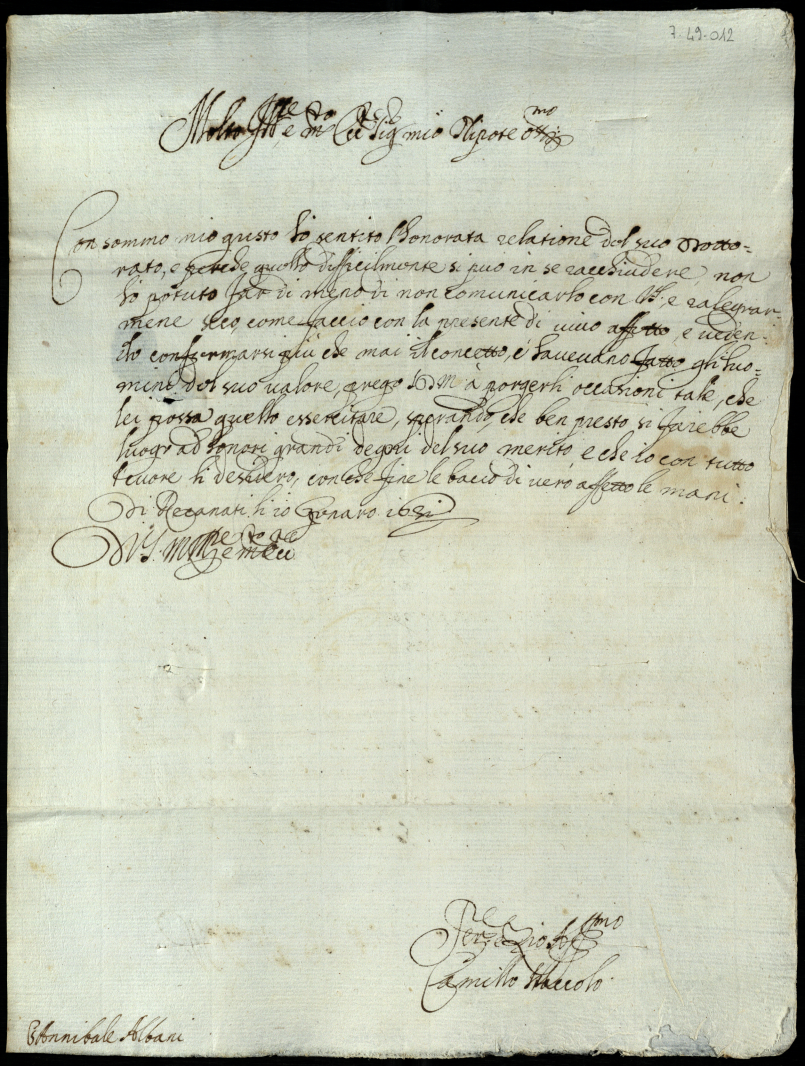 7-49-012
Molto Ill.re e m.to Ecc.te Sig.r mio Nipote oss.mo
Con sommo mio gusto hò sentito l'honorata relatione del suo Dotto-
rato, e perche questo difficilmente si può in se racchiudere, non
hò potuto far di meno di non comunicarlo con V.S. e ralegrar-
mene seco come faccio con la presente di vivo affetto, e veden-
do confermarsi più che mai il concetto, c'havevano fatto gli huo-
mini del suo valore, prego à porgerli occasioni tale, che
lei possa quello essercitare, sperando, che ben presto si farebbe
luogo ad honori grandi degni del suo merito e che io con tutto
il cuore li desidero, con che fine le bacio di vero affetto le mani.
Di Recanati li 10 Genaro 1631
Di V.S. m. Ill.re e m.to Ecc.te
Ser.re e Zio Aff.mo
Camillo
Annibale Albani